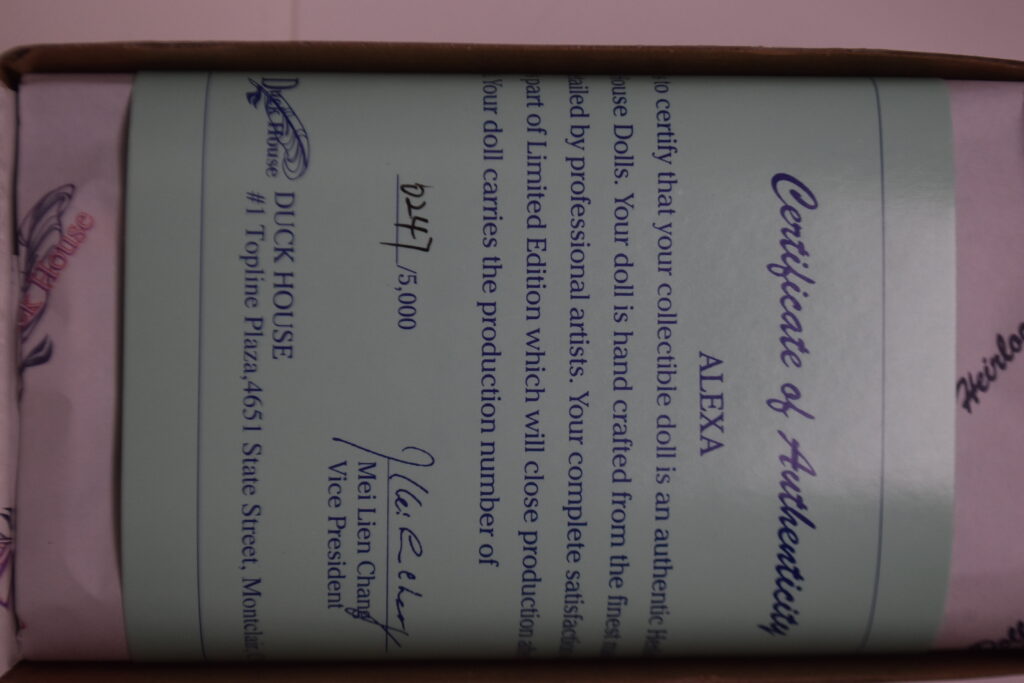 Certificate of Authenticity
ALEXA
to certify that your collectible doll is an authentic
ouse Dolls. Your doll is hand crafted from the finest
ailed by professional artists. Your complete satisfactio
part of Limited Edition which will close production
Your doll carries the production number of
0247/5,000
Mei Lien Chang
Vice President
Duck House
DUCK HOUSE
#1 Topline Plaza,4651 State Street, Montclair,
ck House
Heirloo